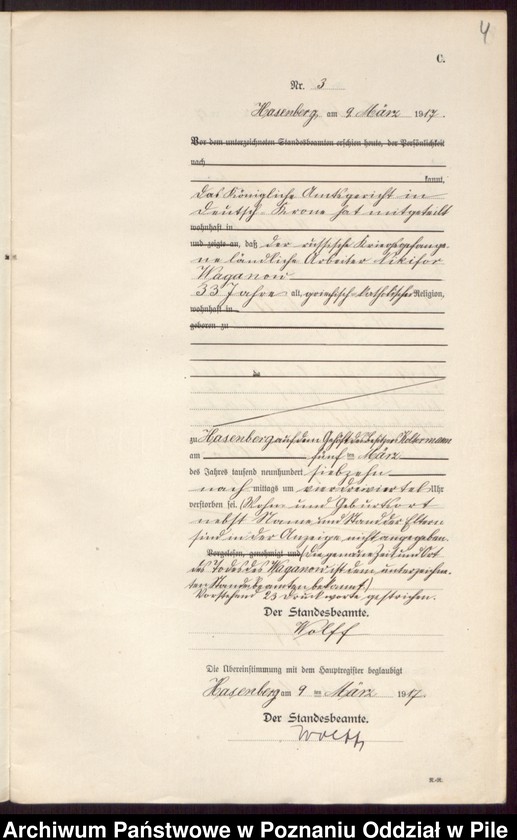 4
C.
Nr. 3
Hasenberg, am 9. März 1917.
Vor dem unterzeichneten Standesbeamten erschien heute, der Persönlichkeit
nach
kannt,
Das Königliche Amtsgericht in
Deutsch-Krone hat mitgeteilt
wohnhaft in
und zeigte an, daß der russische Kriegsgefange-
ne ländliche Arbeiter Nikifor
Waganow
33 Jahre alt, griechisch-katholischer Religion,
wohnhaft in
geboren zu
de
zu Hasenberg auf dem Gehöft des Besitzers
am fünf ten März
des Jahres tausend neunhundert siebzehn
nach mittags um vierdreiviertel Uhr
verstorben sei. (Wohn- und Geburtsort
nebst Name und Stand der Eltern
sind in der Anzeige nicht angegeben.
Vorgelesen, genehmigt und (die genaue Zeit und Ort
des Todes des Waganow ist dem unterzeichne-
ten Standesbeamten bekannt.)
Vorstehend 23 Druckworte gestrichen.
Der Standesbeamte.
Wolff
Die Übereinstimmung mit dem Hauptregister beglaubigt
Hasenberg am 9 ten März 1917.
Der Standesbeamte.
Wolff
Archiwum Państwowe w Poznaniu Oddział w Pile